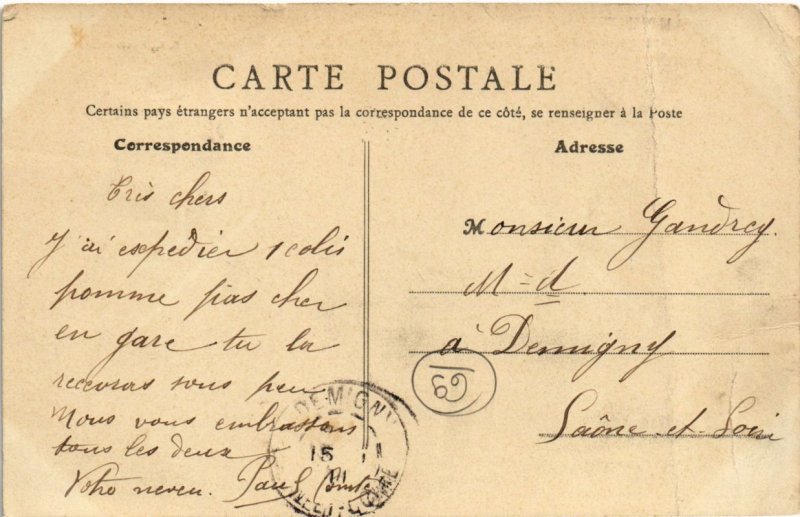 CARTE POSTALE
Certains pays étrangers n'acceptant pas la correspondance de ce côté, se renseigner à la Poste
Correspondance
Très chers
J'ai expedier 1 colis
pomme pas cher
en gare tu la
recevras sous peu
Nous vous embrassons
tous les deux
Votre neveu. Paul
Adresse
Monsieur Gandrey.
M-d
à Demigny
Saône-et-Loire
69
DEMIGNY
15
SAÔNE-ET-LOIRE